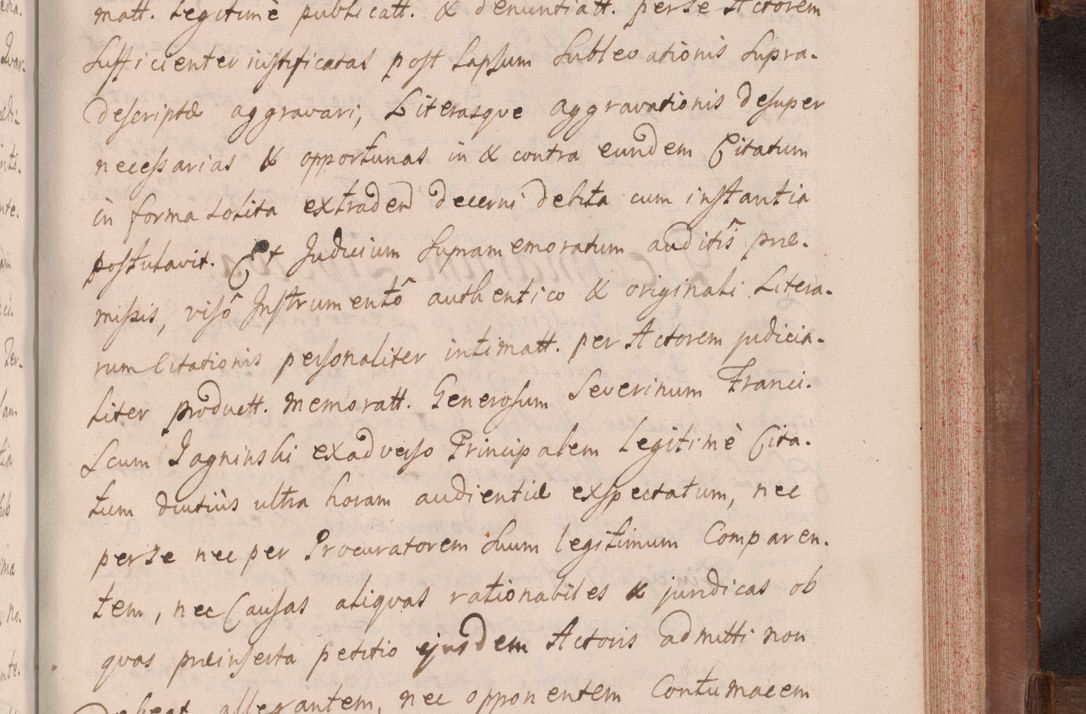 matt. Legitimè publicatt. & denuntiatt. per se Actorem
Sufficienter iustificatas post Lapsum Sublevationis Supra-
descriptæ aggravari, Literasque aggravationis desuper
necessarias & opportunas in & contra eundem Citatum
in forma solita extraden decerni debita cum instantia
postulavit. Et Judicium Supramemoratum auditis præ-
missis, viso Instrumento authentico & originali Litera-
rum Citationis personaliter intimatt. per Actorem judicia-
liter productt. memoratt. Generosum Severinum Franci-
scum Jagninski ex adverso Principalem legitimè Cita-
tum diutiùs ultra horam audientiæ exspectatum, nec
per se nec per Procuratorem Suum legitimum Comparen-
tem, nec Causas aliquas rationabiles & juridicas ob
quas præinserta petitio ejusdem Actoris admitti non
Debeat allegantem, nec opponentem Contumacem